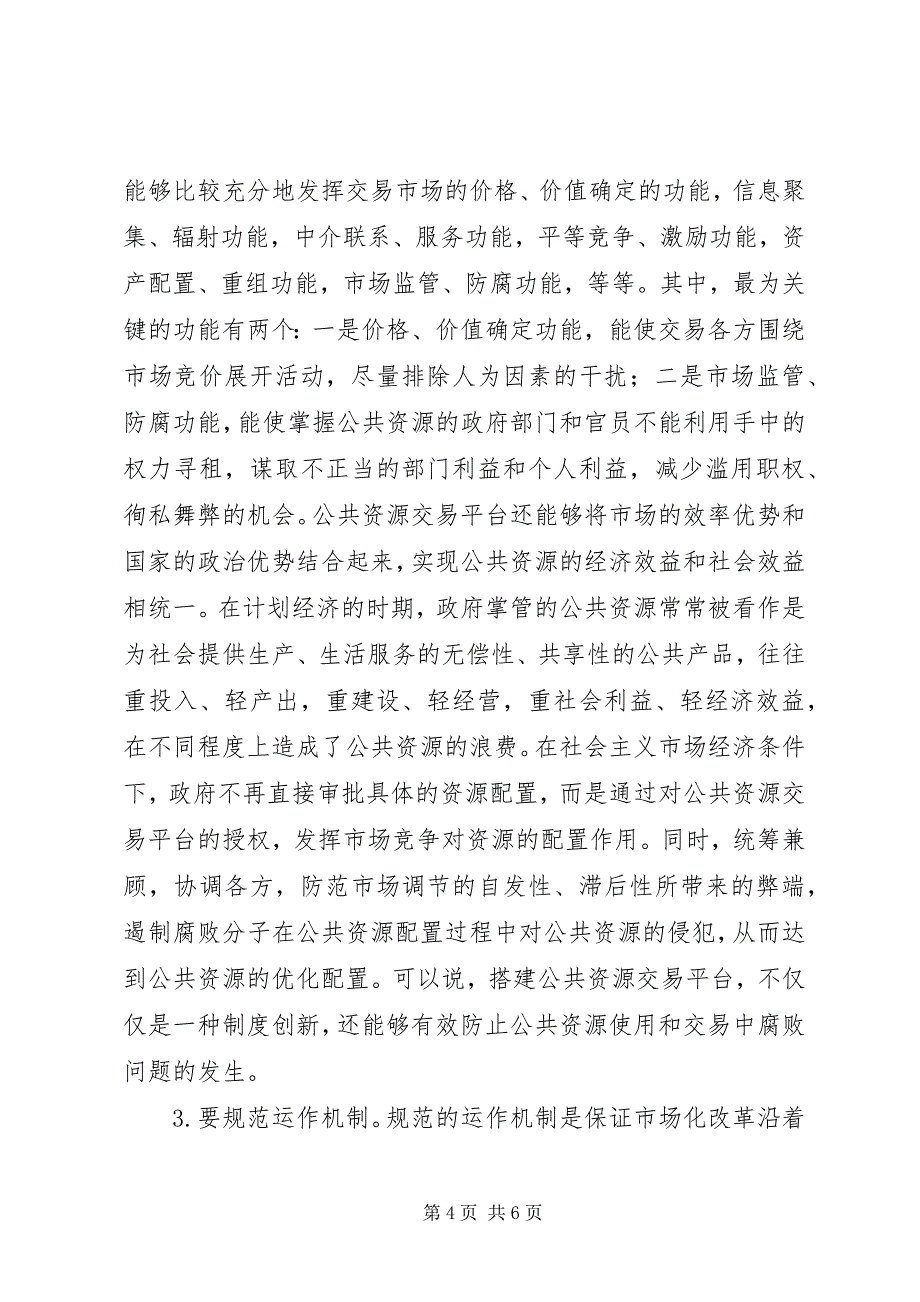 能够比较充分地发挥交易市场的价格、价值确定的功能，信息聚
集、辐射功能，中介联系、服务功能，平等竞争、激励功能，资
产配置、重组功能，市场监管、防腐功能，等等。其中，最为关
键的功能有两个：一是价格、价值确定功能，能使交易各方围绕
市场竞价展开活动，尽量排除人为因素的干扰；二是市场监管、
防腐功能，能使掌握公共资源的政府部门和官员不能利用手中的
权力寻租，谋取不正当的部门利益和个人利益，减少滥用职权、
徇私舞弊的机会。公共资源交易平台还能够将市场的效率优势和
国家的政治优势结合起来，实现公共资源的经济效益和社会效益
相统一。在计划经济的时期，政府掌管的公共资源常常被看作是
为社会提供生产、生活服务的无偿性、共享性的公共产品，往往
重投入、轻产出，重建设、轻经营，重社会利益、轻经济效益，
在不同程度上造成了公共资源的浪费。在社会主义市场经济条件
下，政府不再直接审批具体的资源配置，而是通过对公共资源交
易平台的授权，发挥市场竞争对资源的配置作用。同时，统筹兼
顾，协调各方，防范市场调节的自发性、滞后性所带来的弊端，
遏制腐败分子在公共资源配置过程中对公共资源的侵犯，从而达
到公共资源的优化配置。可以说，搭建公共资源交易平台，不仅
仅是一种制度创新，还能够有效防止公共资源使用和交易中腐败
问题的发生。
3.要规范运作机制。规范的运作机制是保证市场化改革沿着
第 4 页 共 6 页